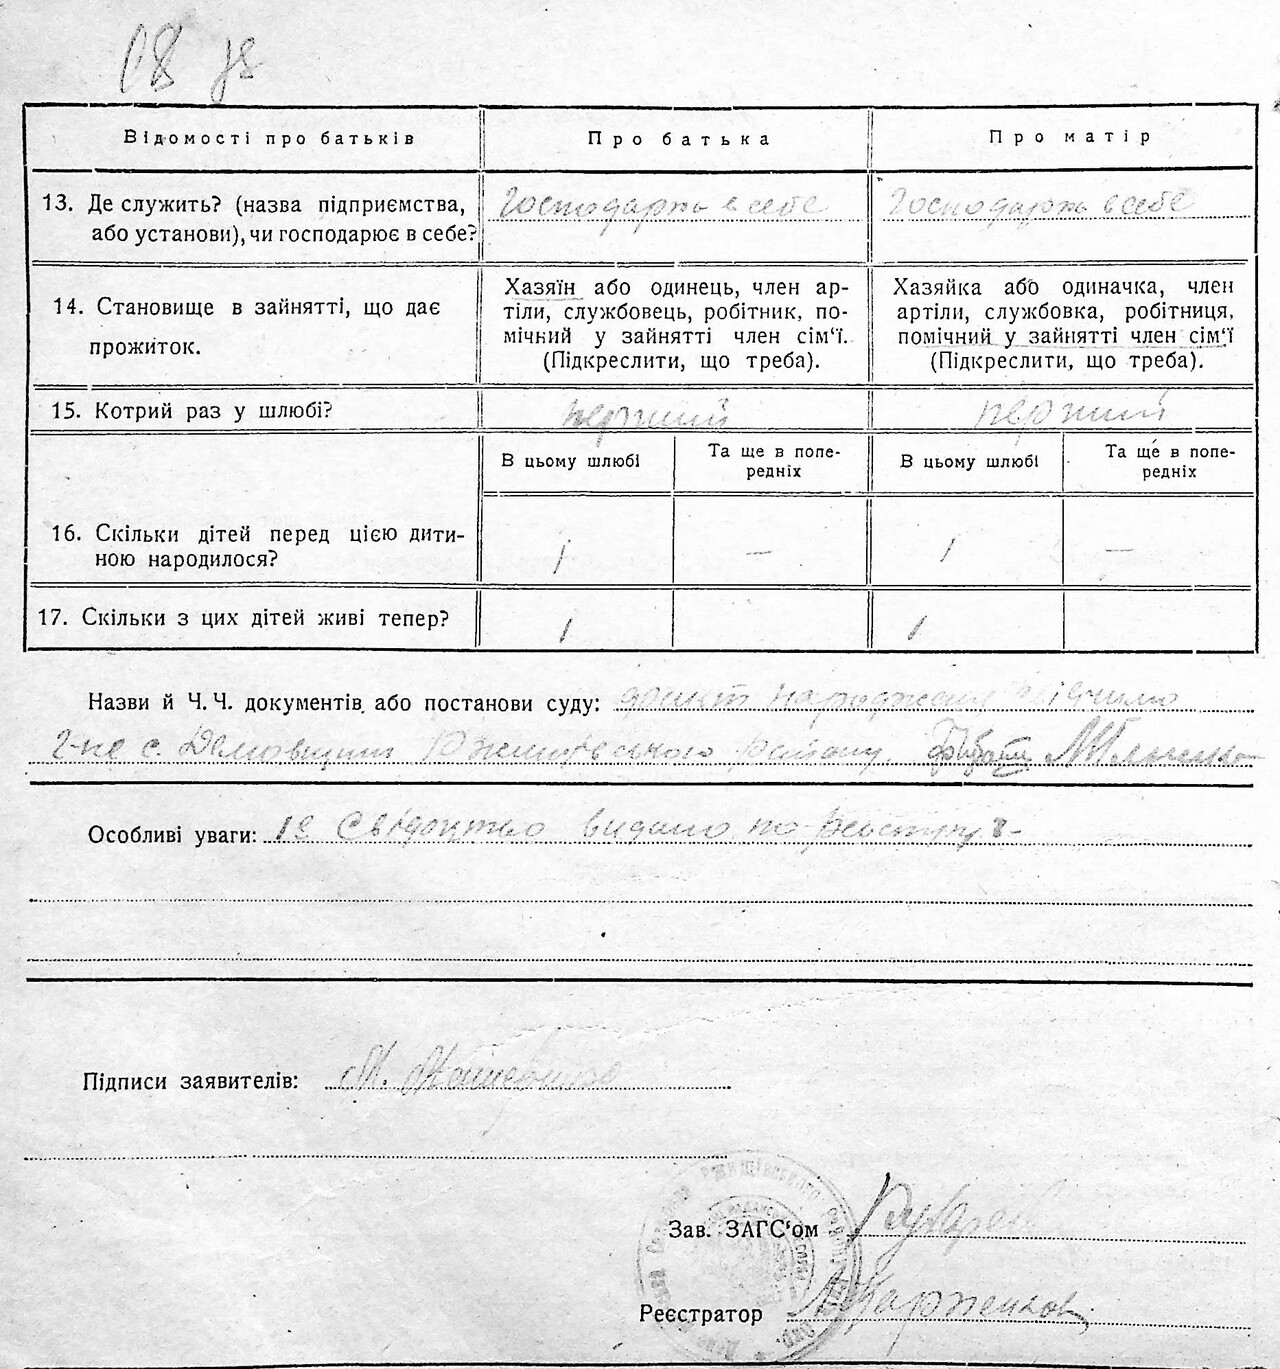 Відомості про батьків
Про батька
Про матір
13. Де служить? (назва підприємства,
або установи), чи господарює в себе?
Господарть в себе
Господарть в себе
14. Становище в зайнятті, що дає
прожиток.
Хазяїн або одинець, член ар-
тіли, службовець, робітник, по-
мічний у зайнятті член сім‘ї.
(Підкреслити, що треба).
Хазяйка або одиначка, член
артіли, службовка, робітниця,
помічний у зайнятті член сім‘ї
(Підкреслити, що треба).
15. Котрий раз у шлюбі?
перший
перший
В цьому шлюбі
Та ще в попе-
редніх
В цьому шлюбі
Та ще в попе-
редніх
16. Скільки дітей перед цією дити-
ною народилося?
1
—
1
—
17. Скільки з цих дітей живі тепер?
1
1
Назви й Ч. Ч. документів або постанови суду: факт народження свідчило
2-не с. Демовщина Ржищівського Району.
Особливі уваги: Свідоцтво видано по реєстру
Підписи заявителів: М.
Зав. ЗАГС‘ом
Реєстратор